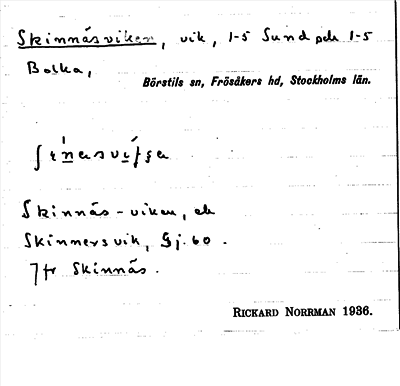 Skinnäsviken, vik, 1-5 Sund och 1-5
Bolka,
Börstils sn, Frösåkers hd, Stockholms län.
Skinnäs-viken, ek
Skinnersvik, Gj. 60.
Jfr Skinnäs.
RICKARD NORRMAN 1936.